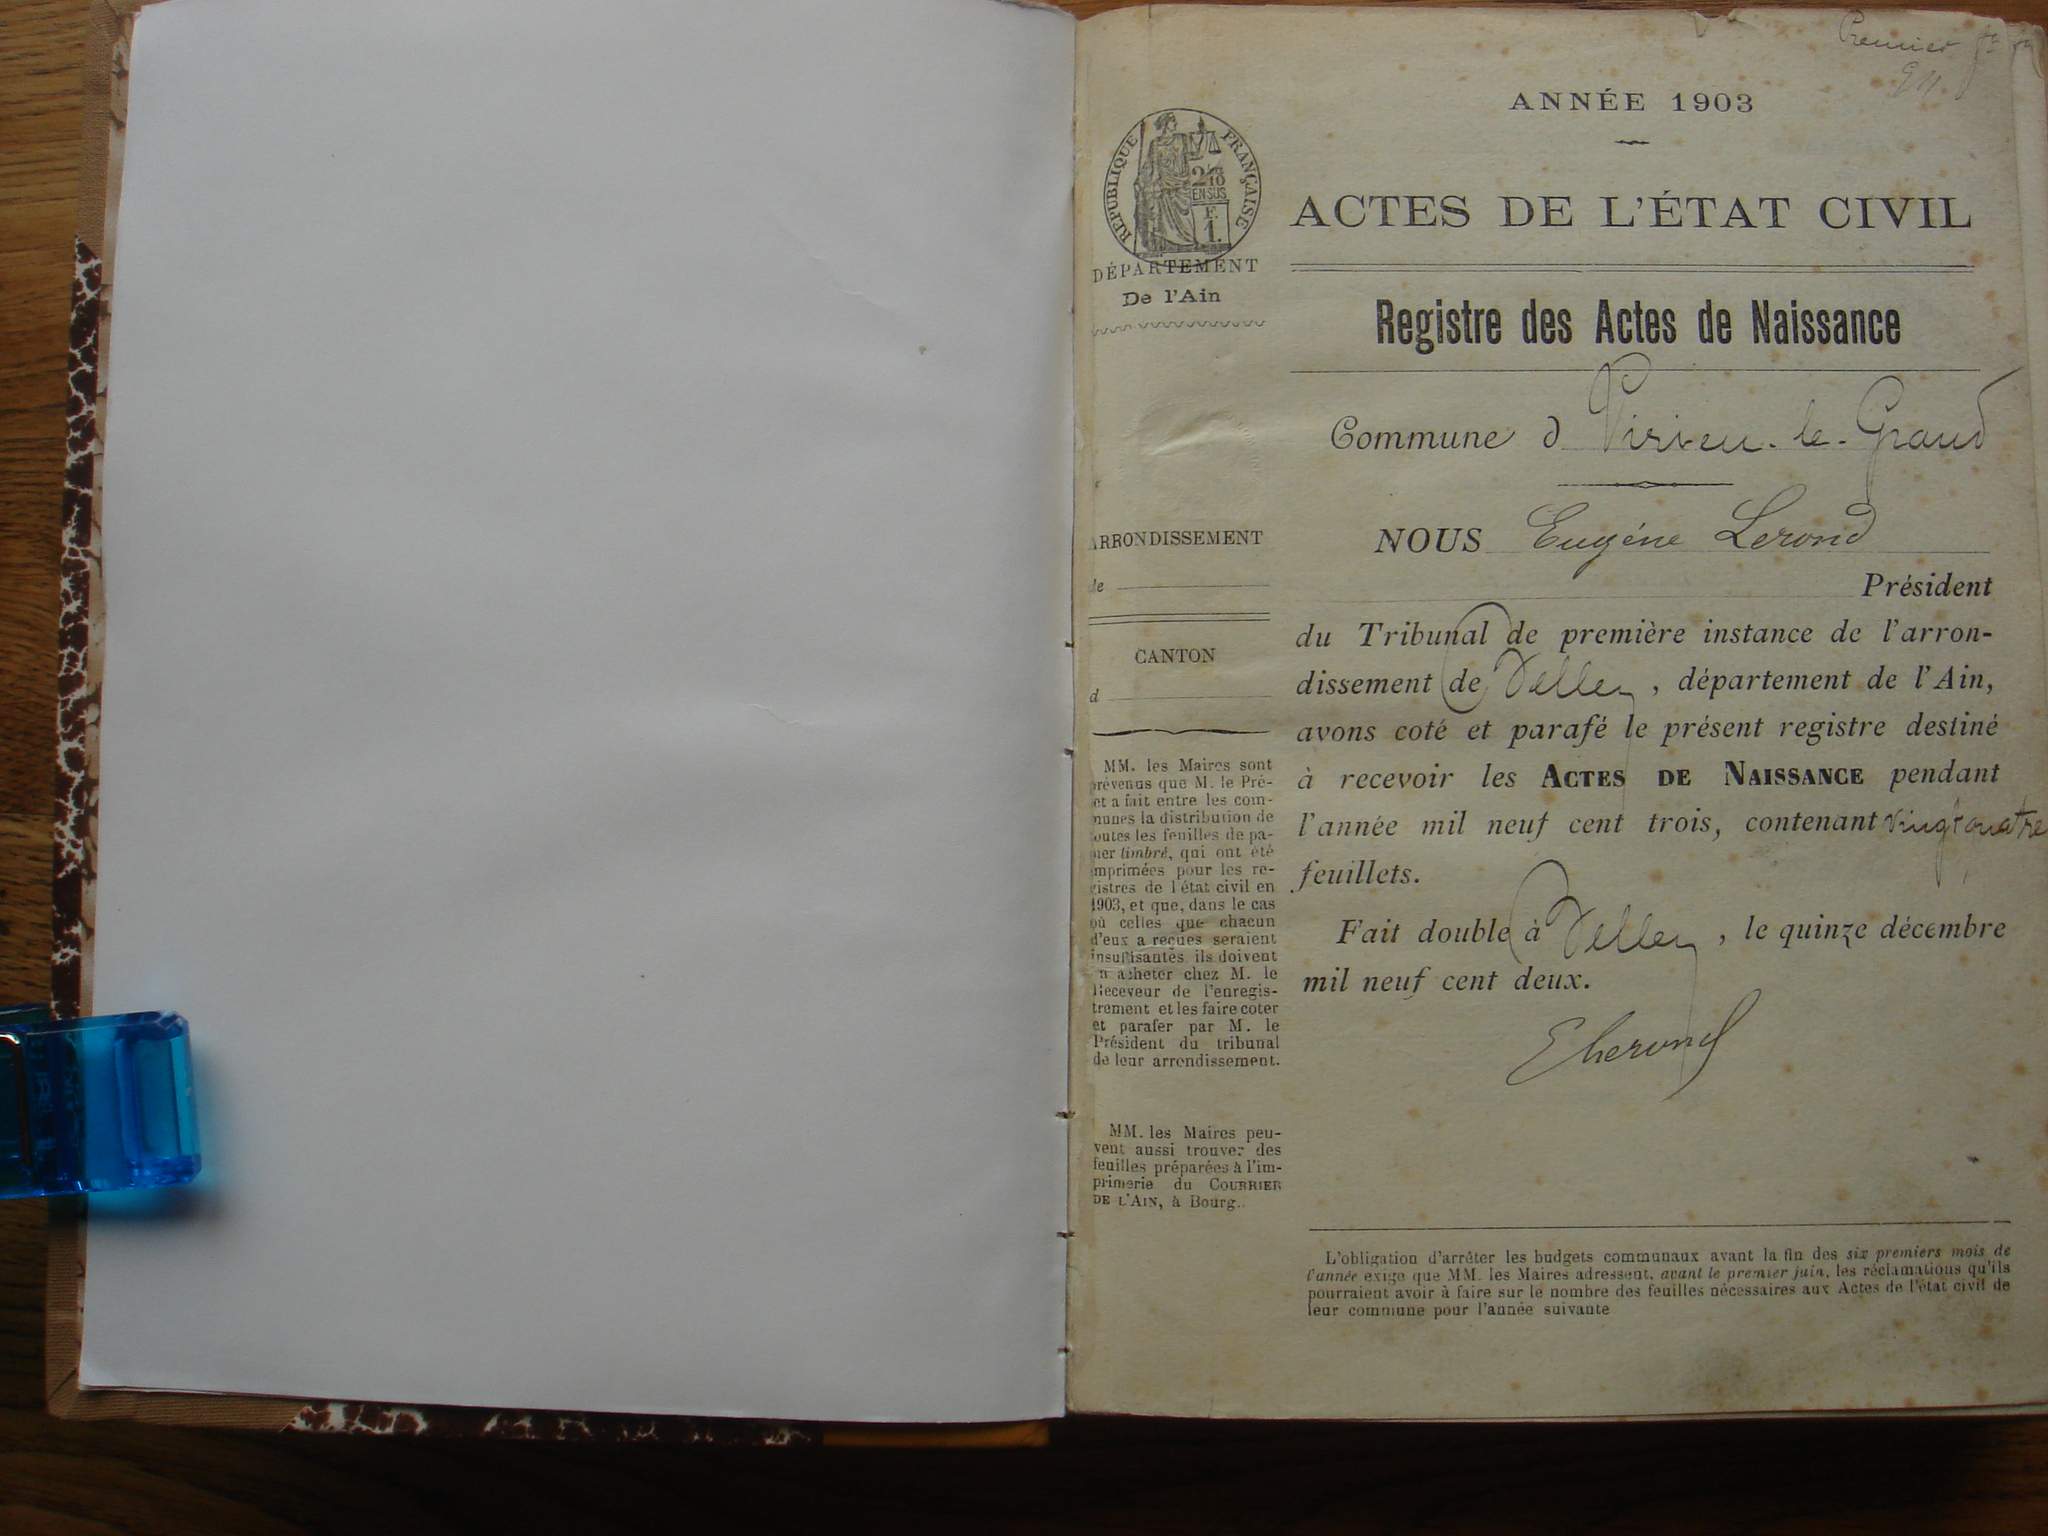 Premier
ANNÉE 1903
RÉPUBLIQUE FRANÇAISE
2/10
EN SUS
F.
1.
ACTES DE L'ÉTAT CIVIL
DÉPARTEMENT
De l'Ain
Registre des Actes de Naissance
Commune d Virieu-le-Grand
NOUS Eugène Lerond
Président
du Tribunal de première instance de l'arron-
dissement de Belley, département de l'Ain,
avons coté et parafé le présent registre destiné
à recevoir les ACTES DE NAISSANCE pendant
l'année mil neuf cent trois, contenant vingt quatre
feuillets.
Fait double à Belley, le quinze décembre
mil neuf cent deux.
ELerond
ARRONDISSEMENT
de
CANTON
d
MM. les Maires sont
prévenus que M. le Pré-
et a fait entre les com-
munes la distribution de
outes les feuilles de pa-
ier timbré, qui ont été
imprimées pour les re-
gistres de l'état civil en
1903, et que, dans le cas
où celles que chacun
d'eux a reçues seraient
insuffisantes, ils doivent
n acheter chez M. le
Receveur de l'enregis-
trement et les faire coter
et parafer par M. le
Président du tribunal
de leur arrondissement.
MM. les Maires peu-
vent aussi trouver des
feuilles préparées à l'im-
primerie du COURRIER
DE L'AIN, à Bourg.
L'obligation d'arrêter les budgets communaux avant la fin des six premiers mois de
l'année exige que MM. les Maires adressent, avant le premier juin, les réclamations qu'ils
pourraient avoir à faire sur le nombre des feuilles nécessaires aux Actes de l'état civil de
leur commune pour l'année suivante